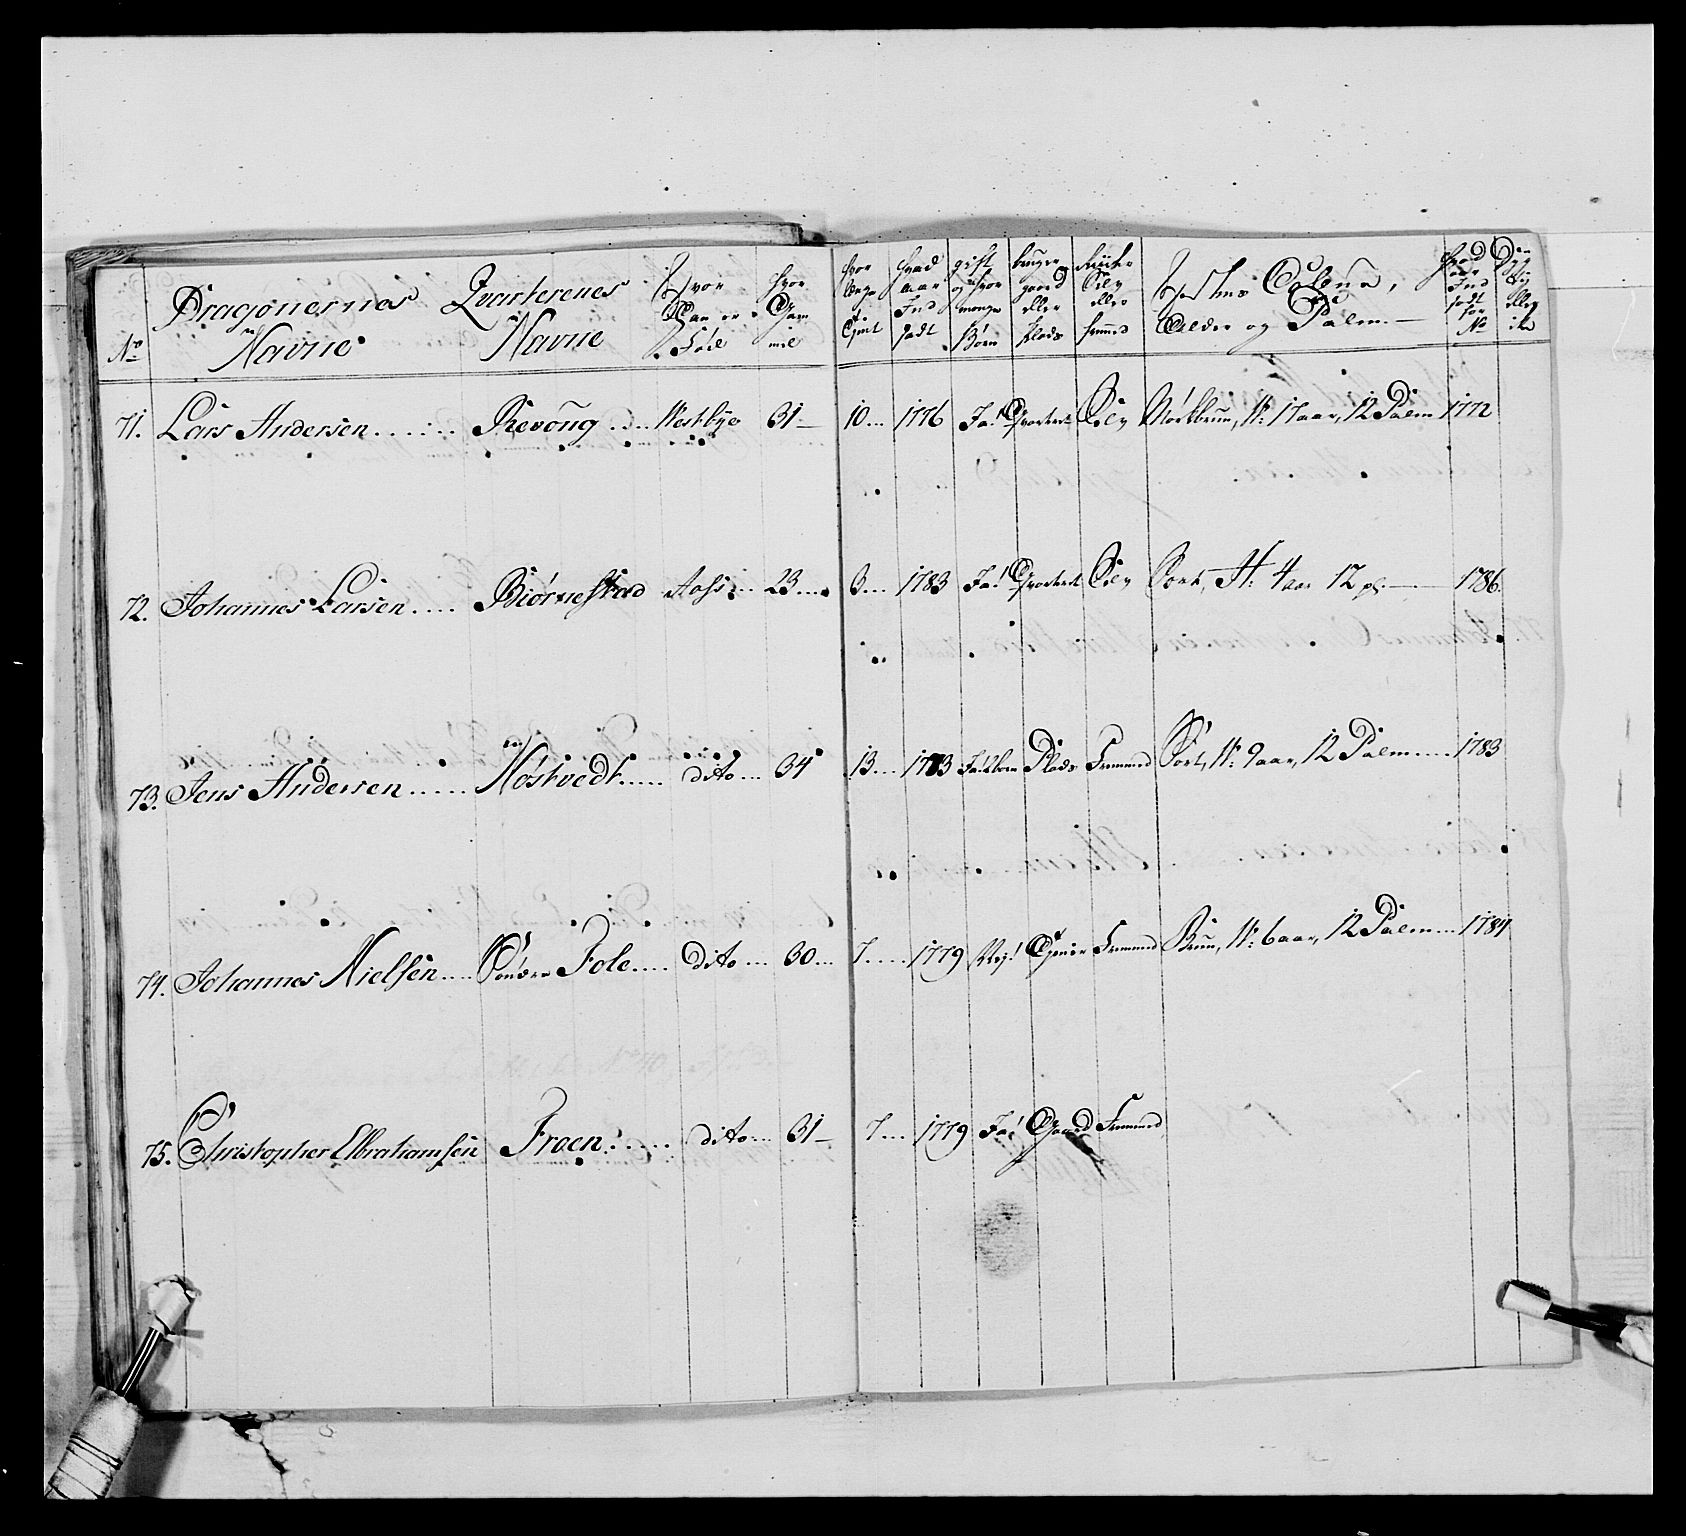 No Dragonernes Navne Qvarterenes Navne Hvor Han er Fód hvor Gam̃el hvor lenge tient hvad aar Ind sadt gift og hvor mange Börn bruger gaard eller Plads Rüke eller fremmed Hestens Coleur, Alder og Palm hvad aar Ind sadt for No eller ike
71. Lars Andersen Revoug Westbye 31 10 1776 Ja! Mörkbrun, H: 17aar, 12 Palm 1772
72. Johannes Larsen Biórnestad Aass 23 3 1783 Ja! Sort, H: 4aar 12 pl. 1786.
73. Jens Andersen Nöstvedt dito 34 13 1773 Plads Fremmed Sort, H: 9aar, 12 Palm 1783
74. Johannes Nielsen Söndre Fole dito 30 7 1779 Nej! Fremmed Brun, H: 6aar, 12 Palm 1784
75. Christopher Ebrahamsen Froen dito 31 7 1779 Ja! Gaard Fremmed